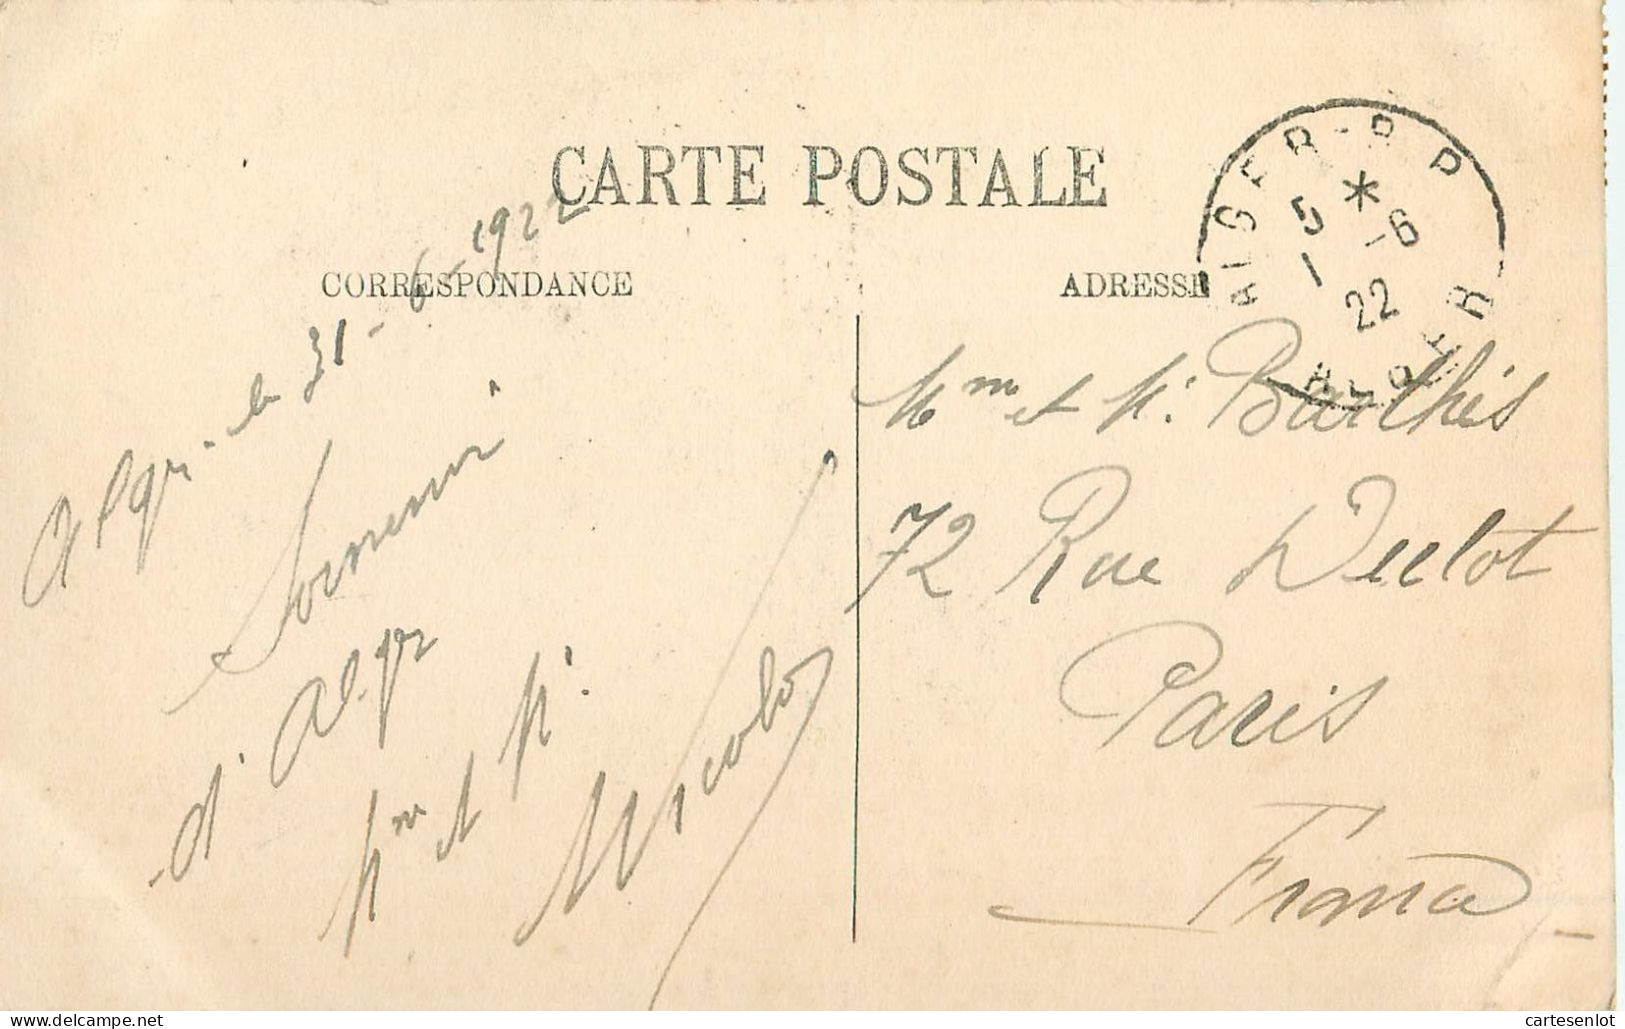 CARTE POSTALE
CORRESPONDANCE
ADRESSE
ALGER - R P
5 * -6
1 22
ALGER
Alger le 31-6-1922
Souvenir
d'Alger
Mme et Mr
Nicolo
Mme et Mr. Barthés
72 Rue Dulot
Paris
France
cartesenlot